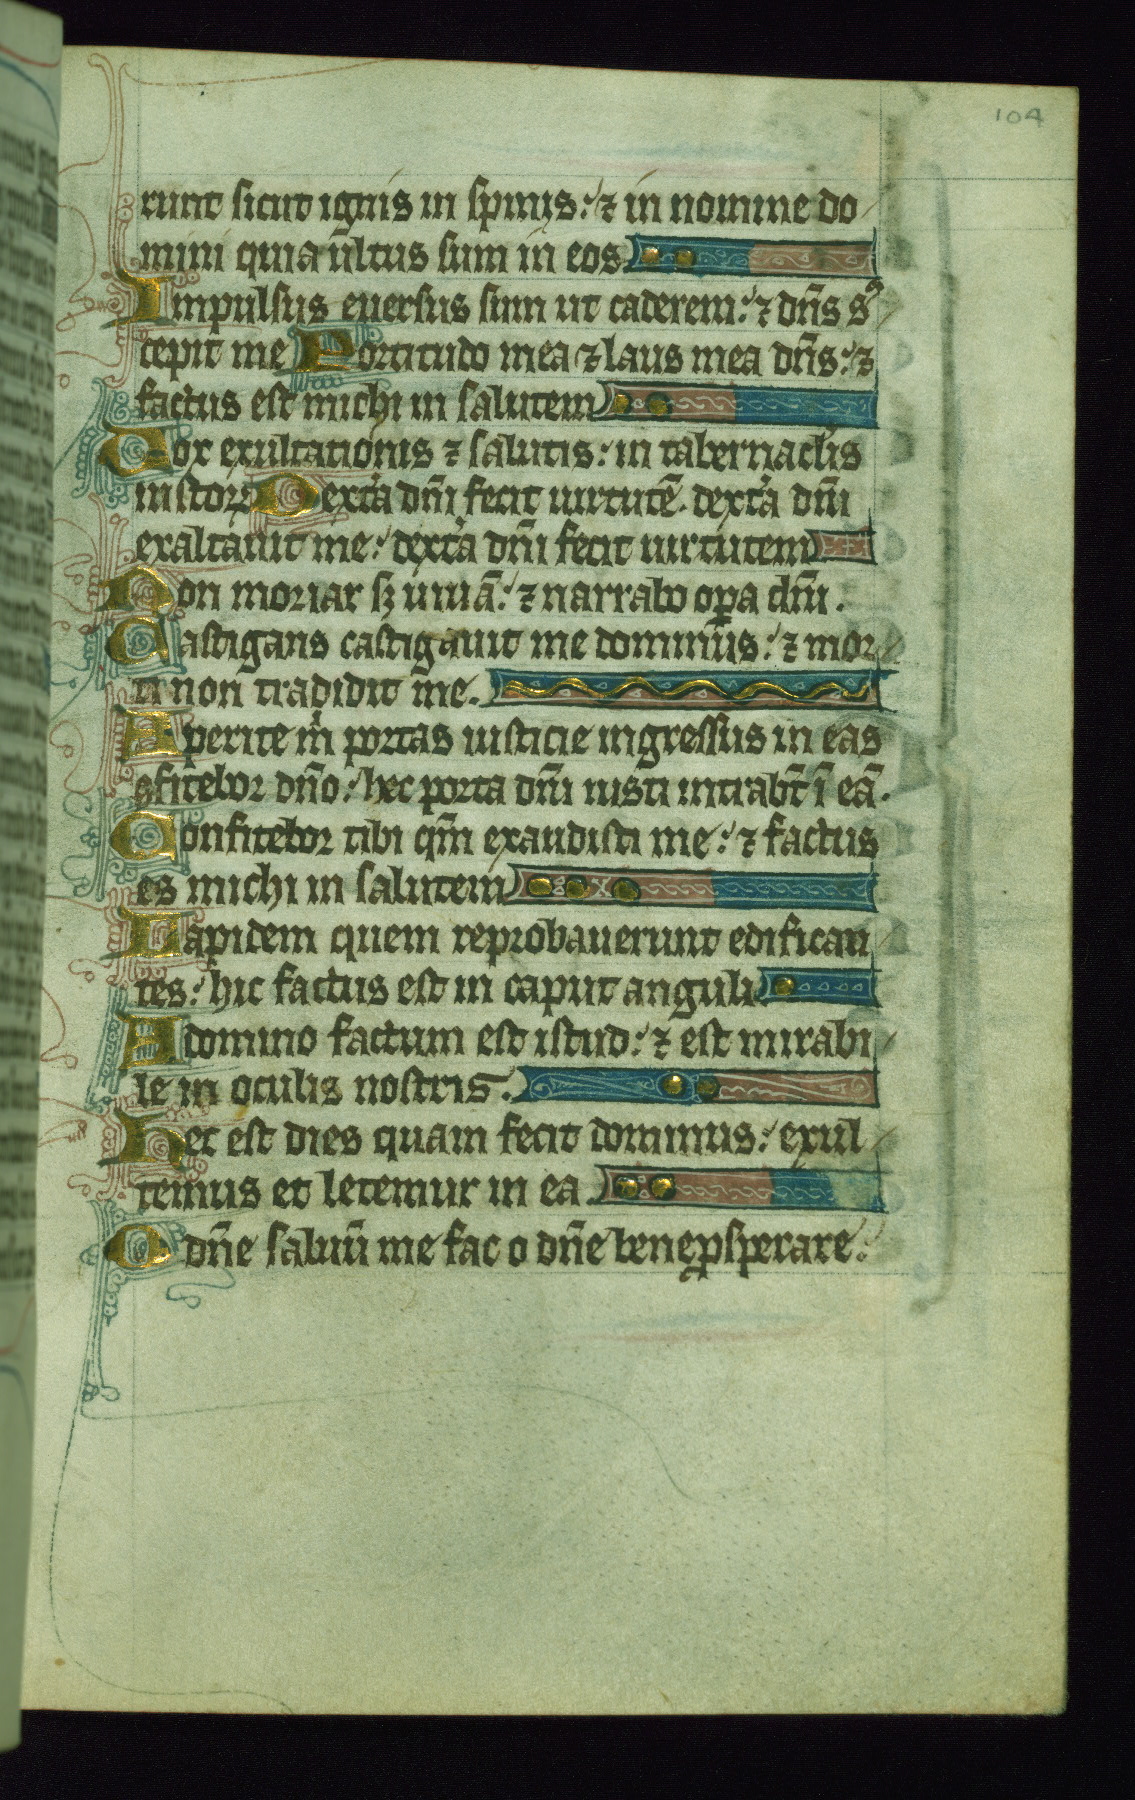 104
runt sicut ignis in spinis: ⁊ in nomine do
mini quia ultus sum in eos
Impulsus euersus sum ut caderem: ⁊ dn̄s sꝰ
cepit me Fortitudo mea ⁊ laus mea dn̄s: ⁊
factus est michi in salutem
Uox exultationis ⁊ salutis: in tabernaclis
iustoꝝ Dextͣa dn̄i fecit uirtutē. dextͣa dn̄i
exaltauit me: dextͣa dn̄i fecit uirtutem
Non moriar sꝫ uiuā: ⁊ narrabo oꝑa dn̄i.
Castigans castigauit me dominus: ⁊ mor
ti non tradidit me.
Aperite m̍ portas iusticie ingressus in eas
ꝯfitebor dn̄o: hec porta dn̄i iusti intrabt̄ ī eā.
Confitebor tibi qm̄ exaudisti me: ⁊ factus
es michi in salutem
Lapidem quem reprobauerunt edifican
tes: hic factus est in caput anguli
A domino factum est istud: ⁊ est mirabi
le in oculis nostris.
Hec est dies quam fecit dominus: exul
temus et letemur in ea.
O dn̄e saluū me fac o dn̄e bene ꝓsperare: